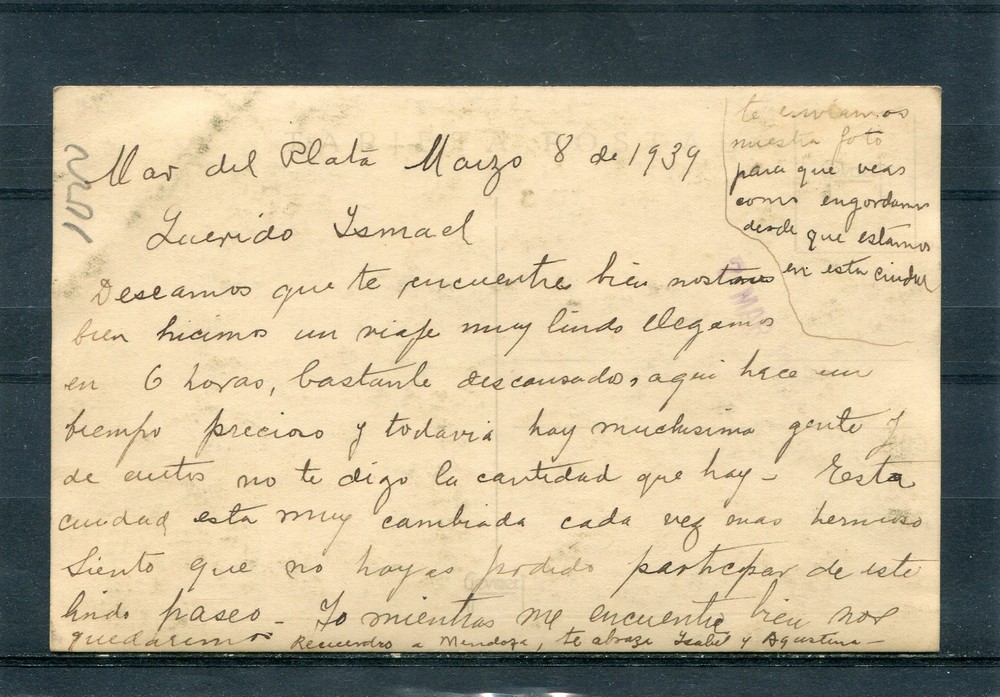 1000
Mar del Plata Marzo 8 de 1939
Querido Ismael
Deseamos que te encuentre bien nosotros
bien hicimos un viaje muy lindo llegamos
en 6 horas, bastante descansados, aqui hace un
tiempo precioso y todavia hay muchisima gente y
de autos no te digo la cantidad que hay - Esta
ciudad esta muy cambiada cada vez mas hermoso
Siento que no hayas podido participar de este
lindo paseo - Yo mientras me encuentre bien nos
quedaremos Recuerdro a Mendoza, te abraza Isabel y Agustina -
te enviamos
nuestra foto
para que veas
como engordamos
desde que estamos
en esta ciudad
TARJETA POSTAL